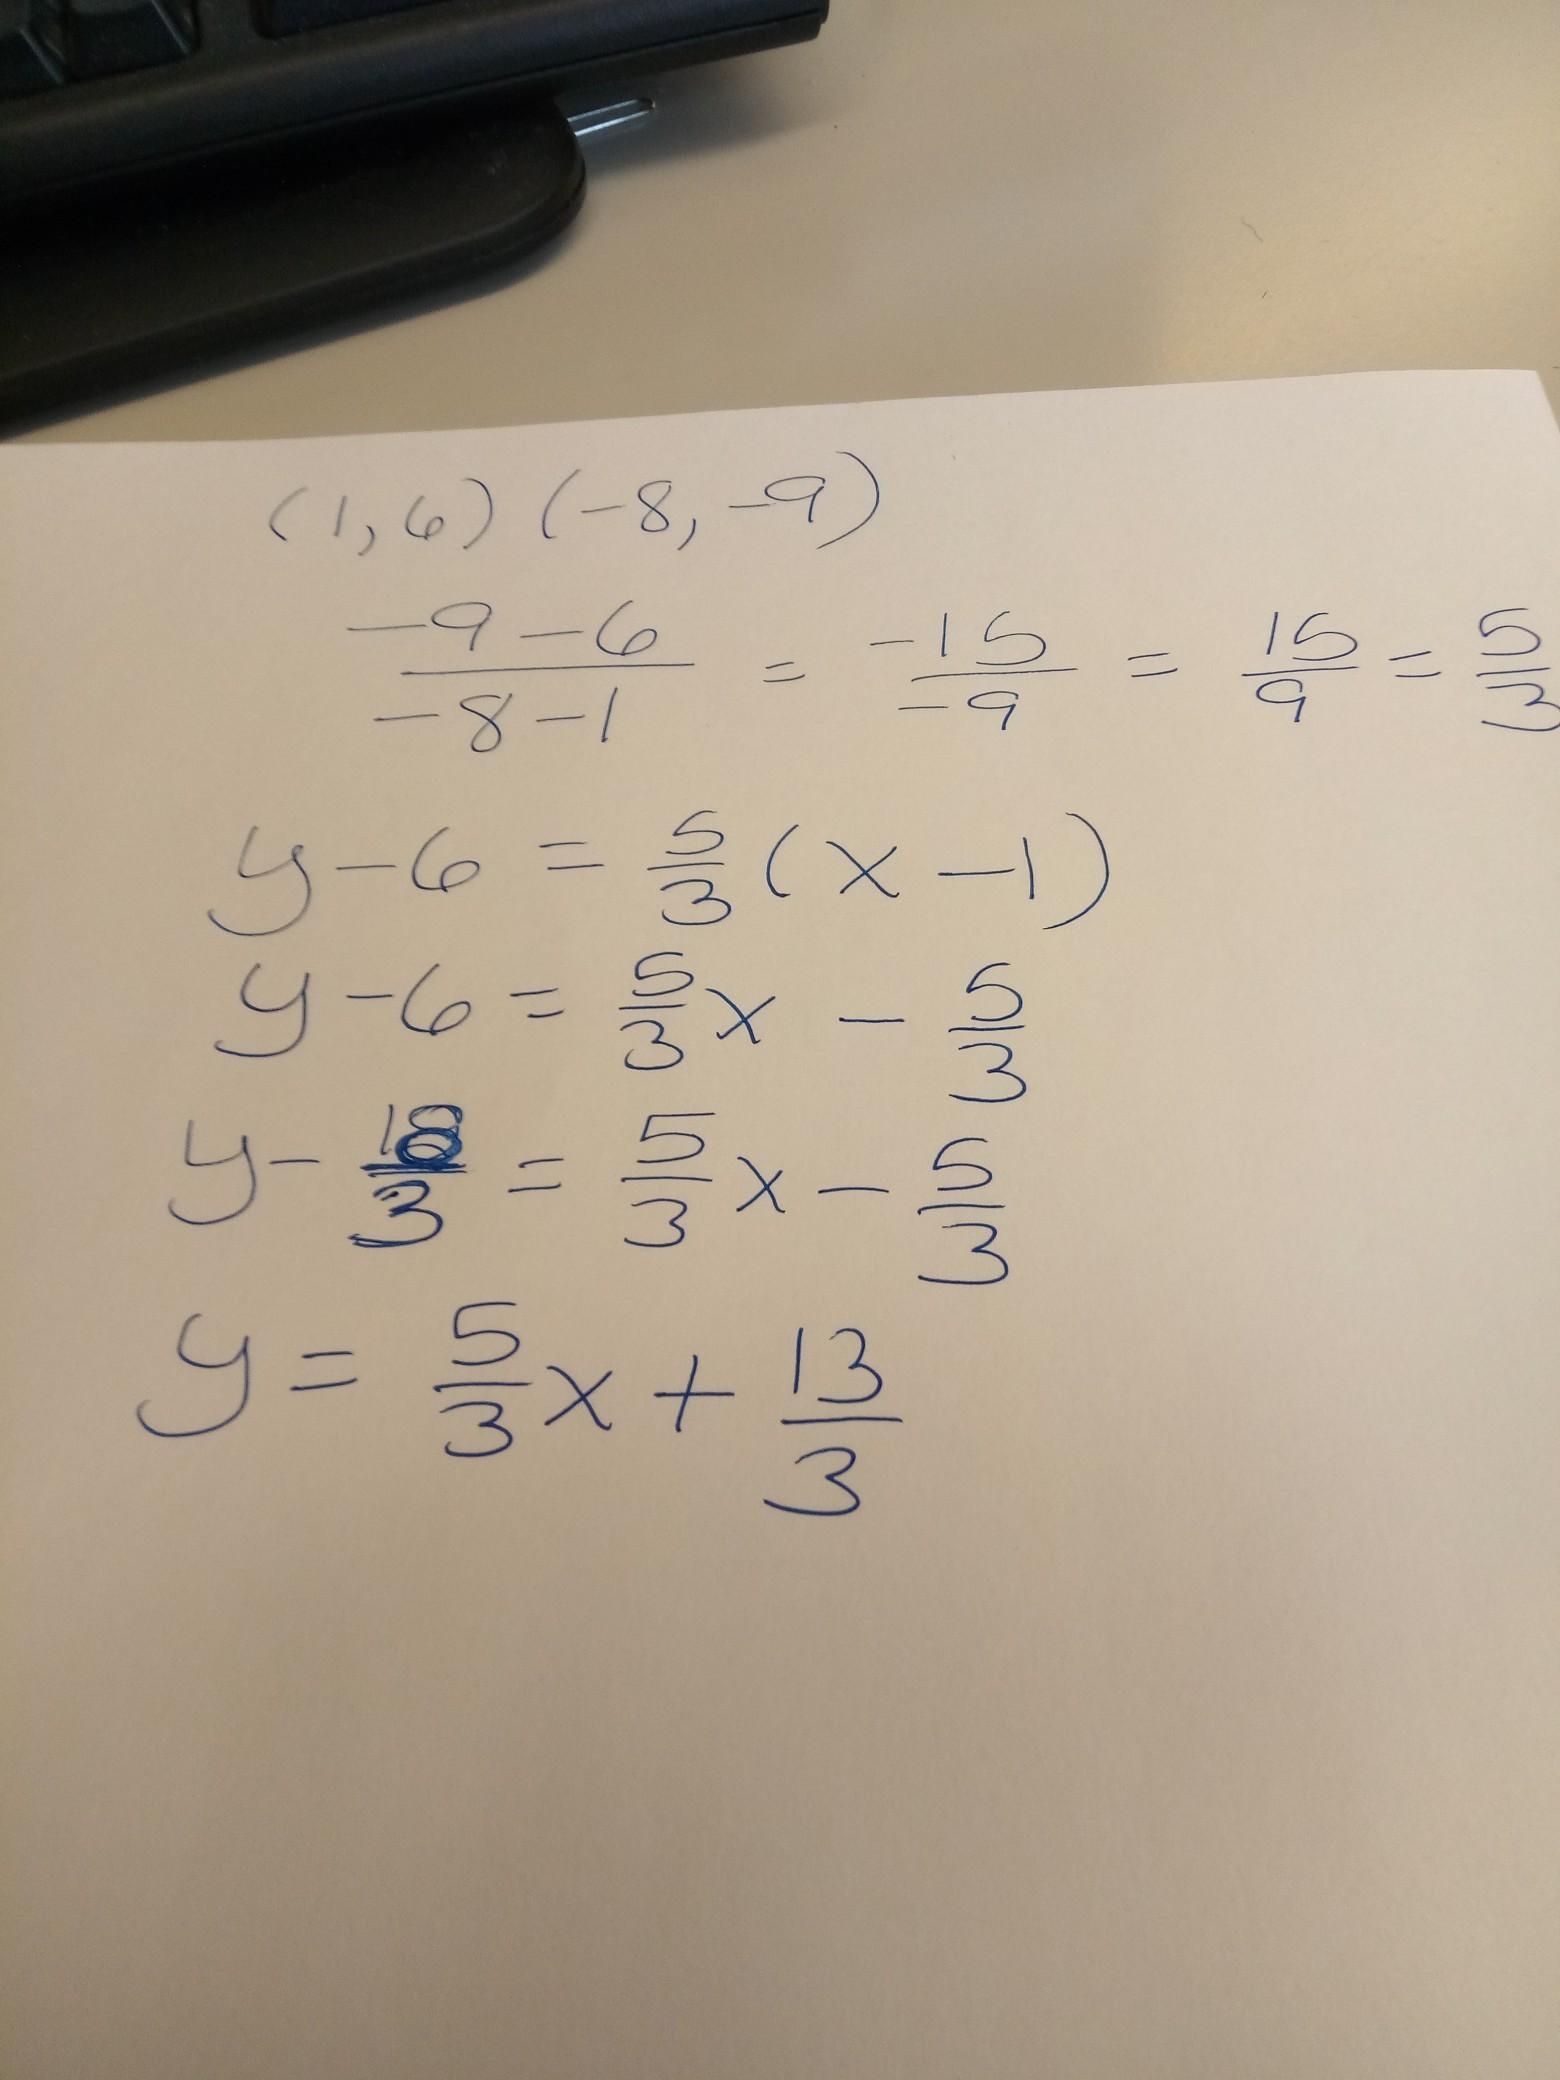 (1, 6) (-8, -9)
-9 - 6 / -8 - 1 = -15 / -9 = 15 / 9 = 5 / 3
y - 6 = 5/3 (x - 1)
y - 6 = 5/3 x - 5/3
y - 18/3 = 5/3 x - 5/3
y = 5/3 x + 13/3